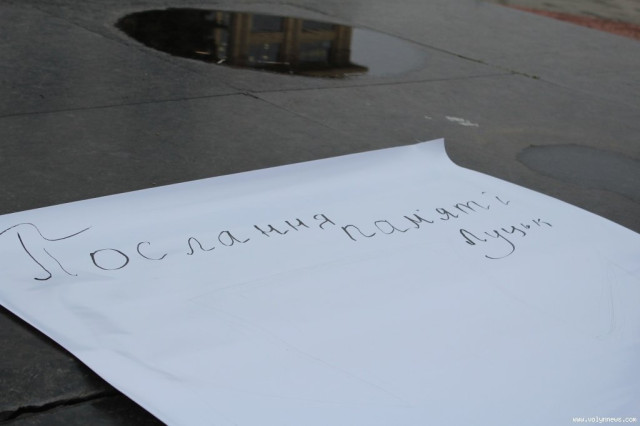 Послання пам'яті
Луцьк
www.volynnews.com